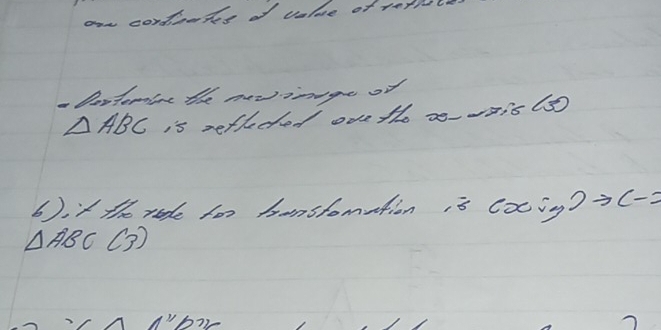 are cordinates of value of
- Dertemine the new image of
△ABC is reflected ove the x-axis (3)
b) if the rule for transfomation is (x;y) → (-
△ABC (3)